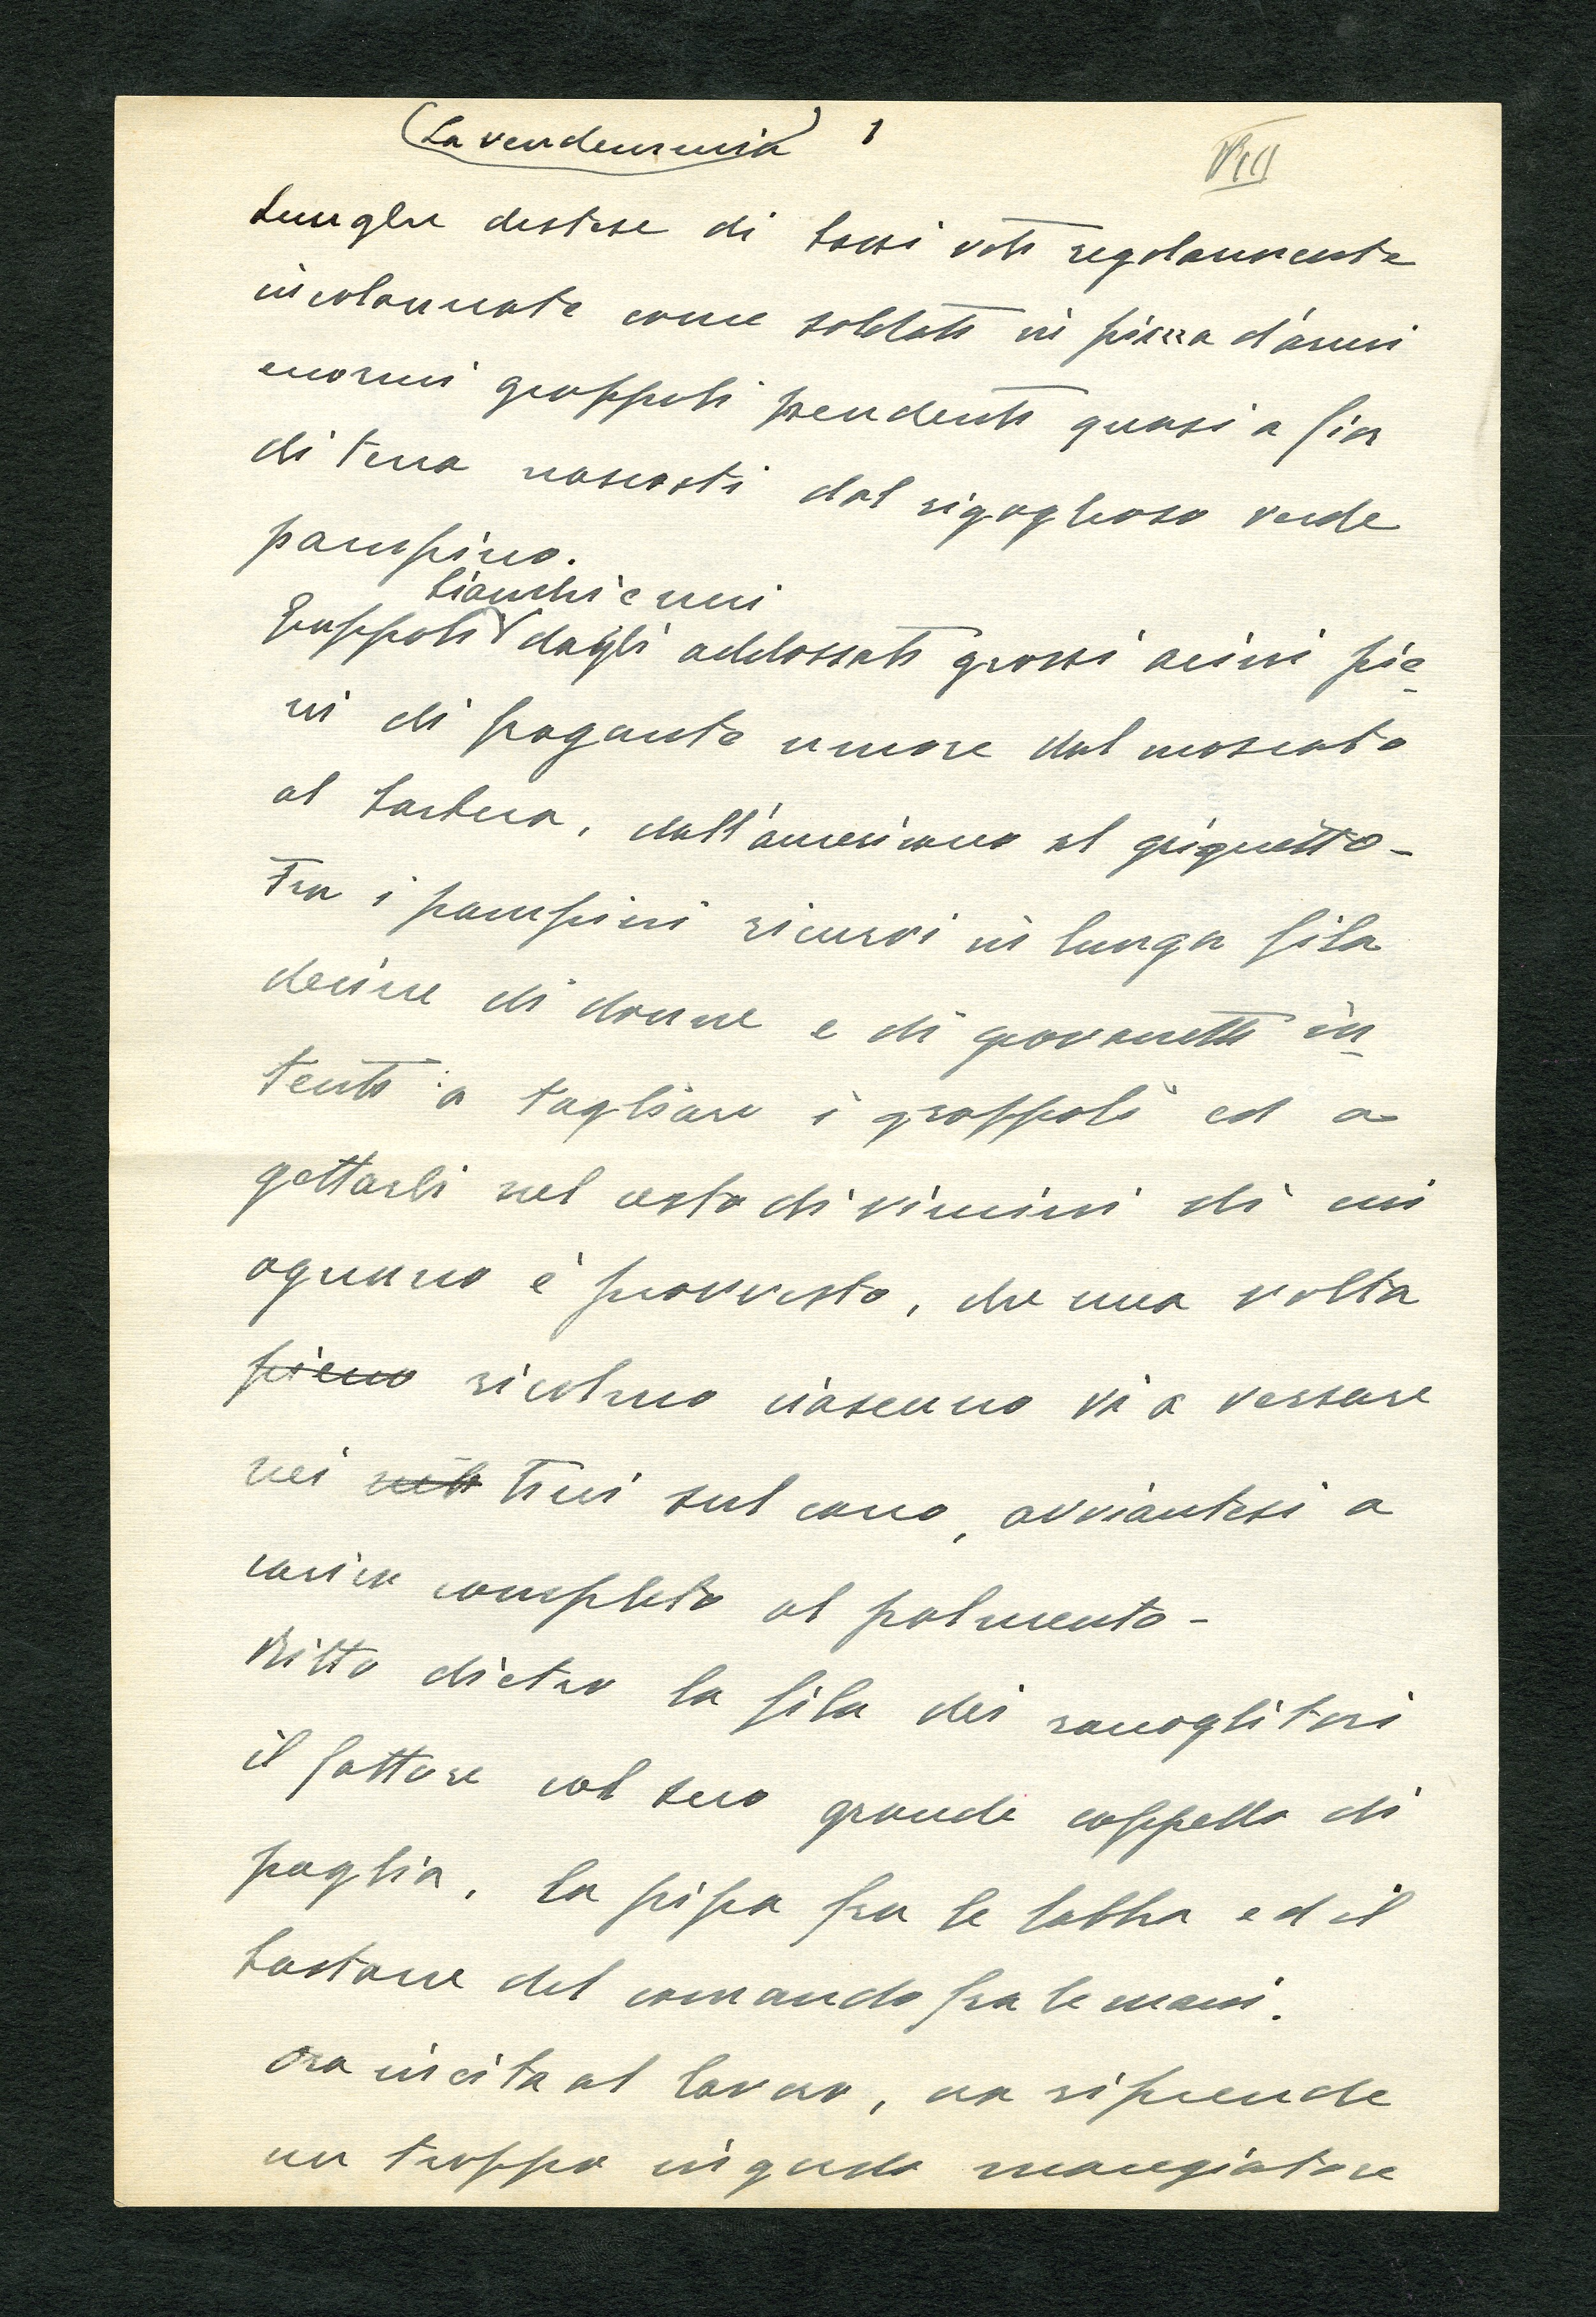 La vendemmia 1
VIII
Lunghe distese di bassi viti regolarmente
incolonnate come soldati in piazza d'armi
enormi grappoli pendenti quasi a fior
di terra nascosti dal rigoglioso verde
pampino.
bianchi e neri
Grappoli dagli addossati grossi acini pie
ni di fragante umore dal moscato
al barbera, dall'americano al grignetto -
Tra i pampini ricurvi in lunga fila
decine di donne e di giovanetti in
tenti a tagliare i grappoli ed a
gettarli nel cesto di vimini di cui
ognuno è provvisto, che una volta
pieno ricolmo ciascuno va a versare
nei tini sul carro, avviantesi a
carico completo al palmento -
Ritto dietro la fila dei raccoglitori
il fattore col suo grande cappello di
paglia, la pipa fra le labbra ed il
bastone del comando fra le mani.
Ora incita al lavoro, ora riprende
un troppo ingordo mangiatore